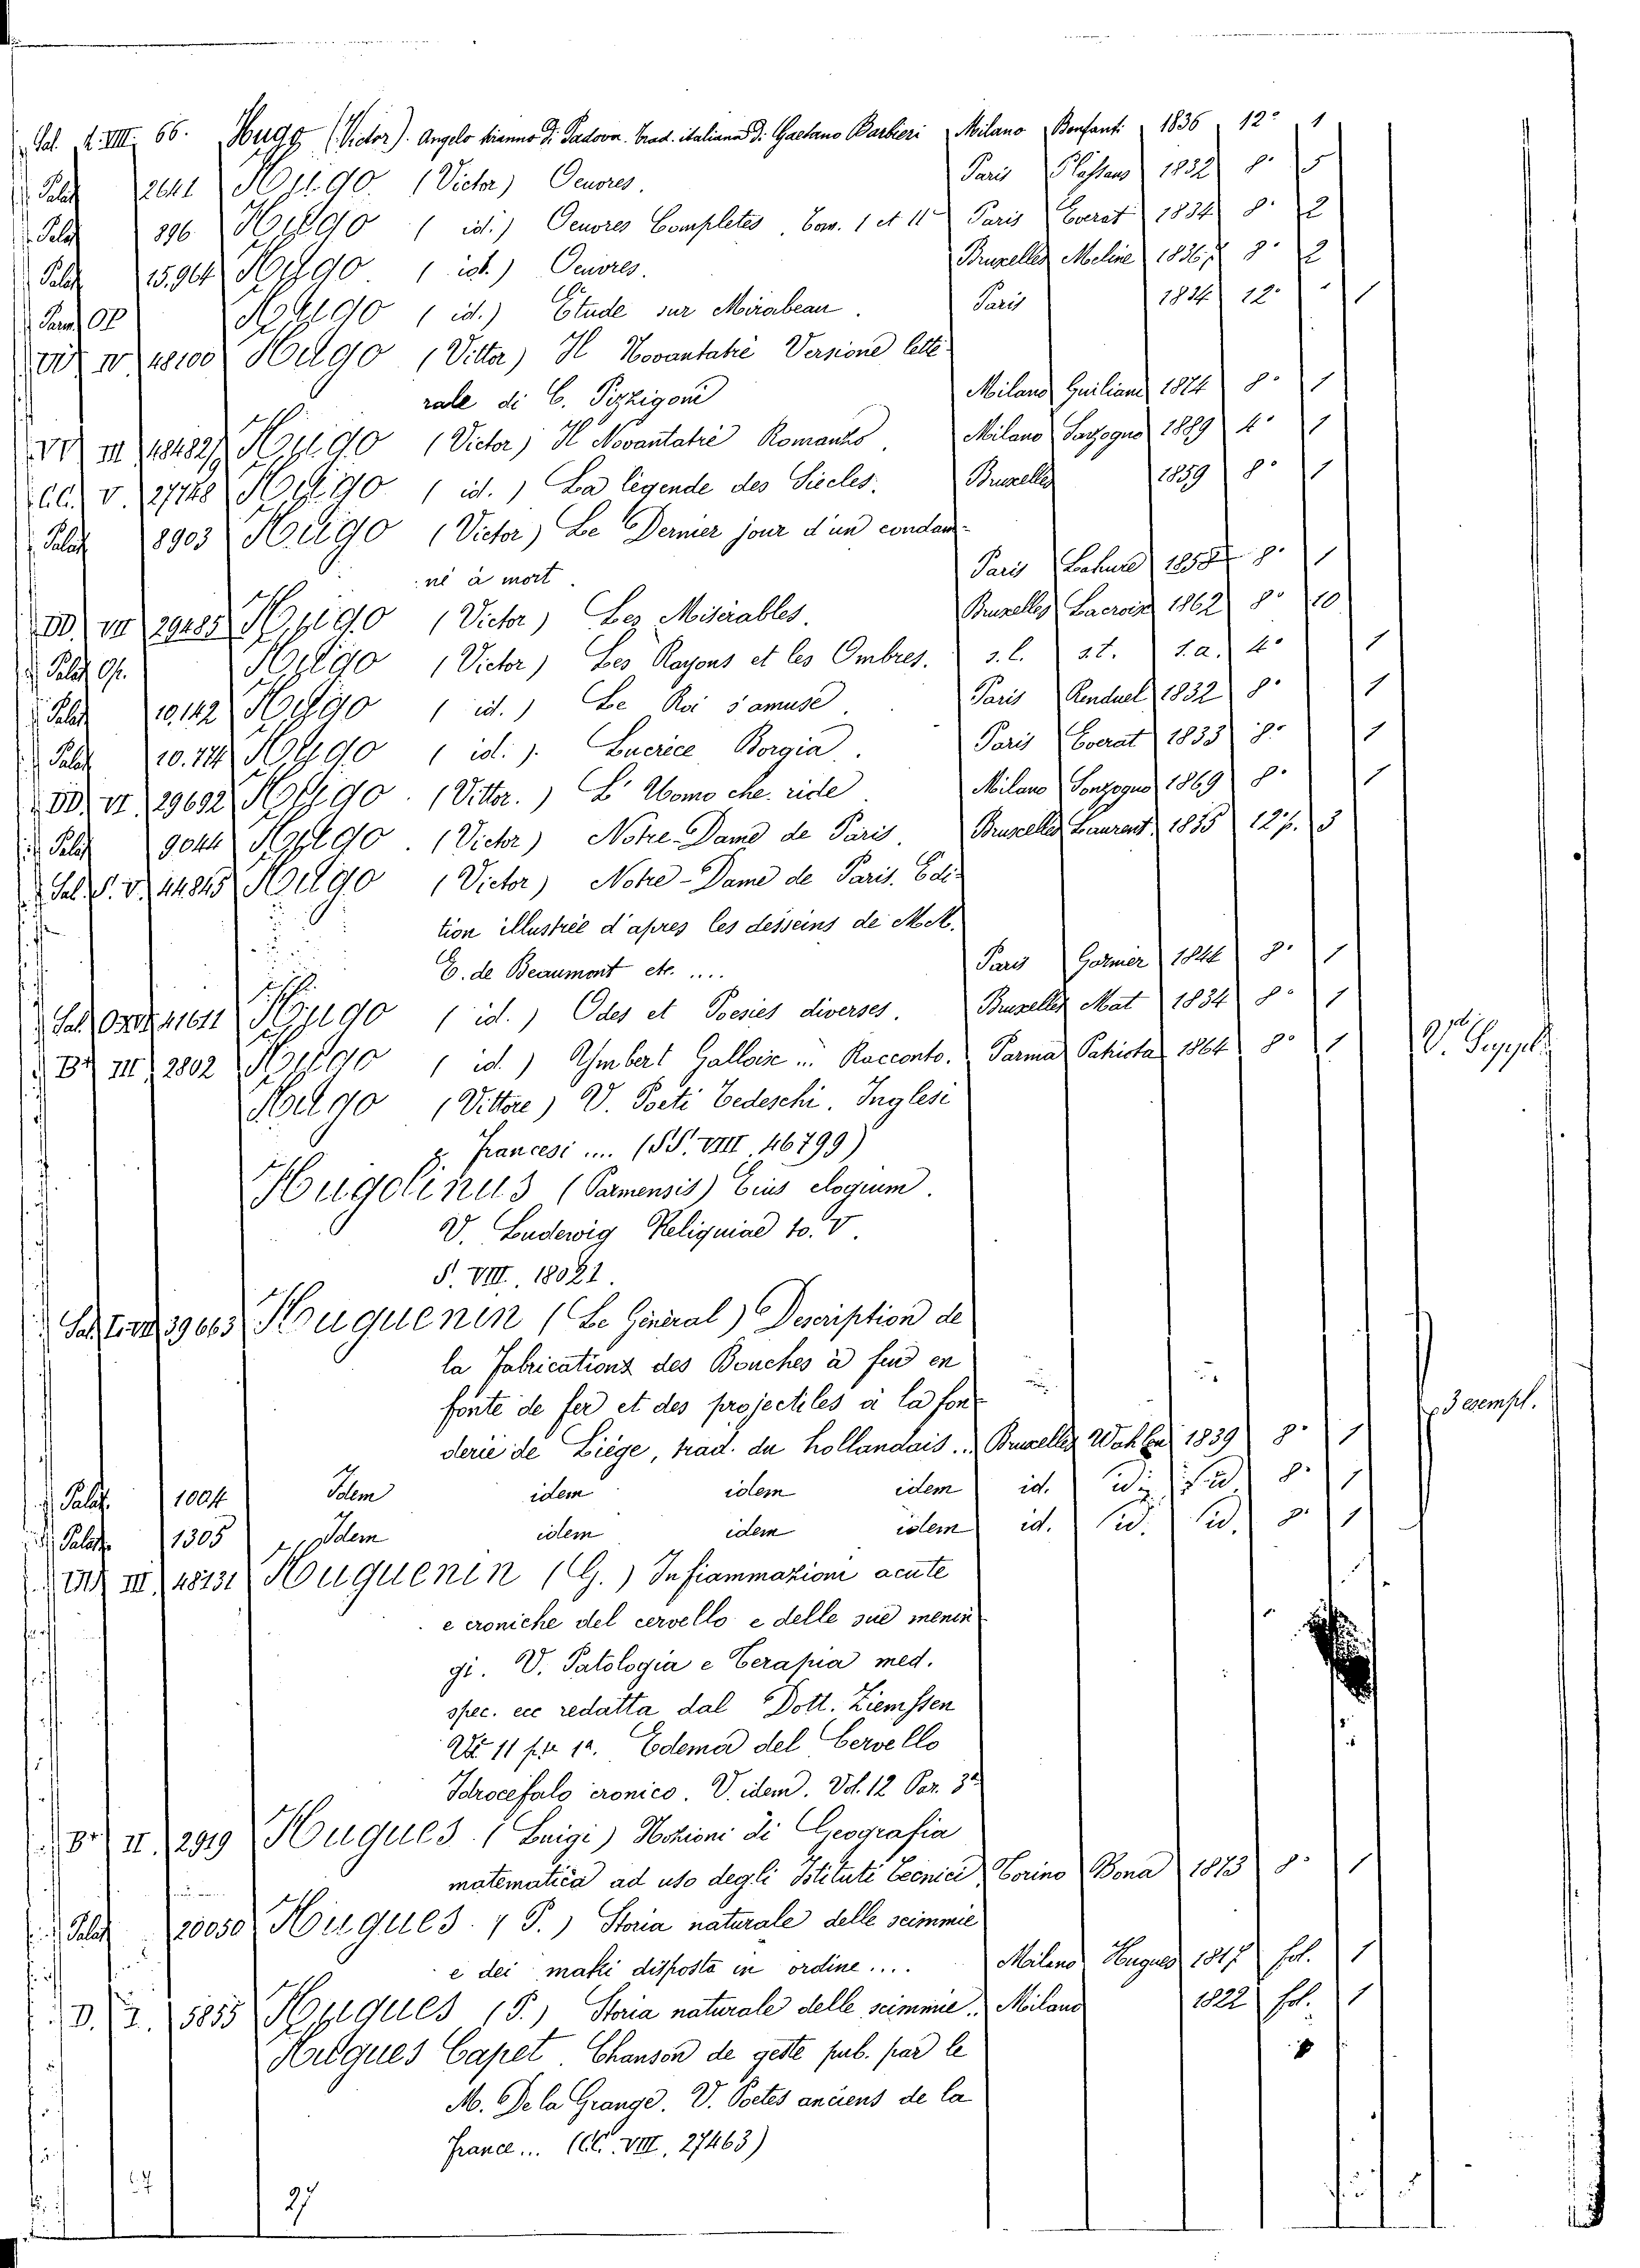 Sal. A. VIII. 66. Hugo (Victor). Angelo tiranno di Padova. Trad. italiana di Gaetano Barbieri Milano Bonfanti 1836 12° 1
Palat 2641 Hugo (Victor) Oeuvres. Paris 1832 8° 5
Palat 896 Hugo (id.) Oeuvres Completes. Tom. 1 et 11 Paris Everat 1834 8° 2
Palat 15.964 Hugo (id.) Oeuvres. Bruxelles Meline 1836 8° 2
Parm. Op Hugo (id.) Étude sur Mirabeau. Paris 1834 12° 1
IV 48100 Hugo (Vittor) Il Novantatrè Versione lette-
rale di C. Pizzigoni Milano Guiliani 1874 8° 1
VV III 48482 Hugo (Victor) Il Novantatrè Romanzo. Milano Sonzogno 1889 4° 1
CC. V 27748 Hugo (id.) La légende des Siecles. Bruxelles 1859 8° 1
Palat 8903 Hugo (Victor) Le Dernier jour d'un condam-
né à mort. Paris Lahure 1858 8° 1
DD. VII 29485 Hugo (Victor) Les Misérables. Bruxelles Lacroix 1862 8° 10
Palat Op. Hugo (Victor) Les Rayons et les Ombres. s. l. s. t. s. a. 4° 1
Palat 10,142 Hugo (id.) Le Roi s'amuse. Paris Renduel 1832 8° 1
Palat 10.774 Hugo (id.). Lucrèce Borgia. Paris Everat 1833 8° 1
DD. VI 29692 Hugo. (Vittor.) L'Uomo che ride Milano Sonzogno 1869 8° 1
Palat 9044 Hugo. (Victor) Notre-Dame de Paris. Bruxelles Laurent 1835 12° p. 3
Sal. S. V. 44845 Hugo (Victor) Notre-Dame de Paris. Edi-
tion illustrée d'apres les desseins de M.M.
E. de Beaumont etc. .... Paris Garnier 1844 8° 1
Sal. 41611 Hugo (id.) Odes et Poesies diverses. Bruxelles Mat 1834 8° 1
Br III 2802 Hugo (id.) Ymbert Galloise ... Racconto. Parma Pahiota 1864 8° 1 V. Suppl.
Hugo (Vittore) V. Poeti Tedeschi. Inglesi
e Francesi .... (SS. VIII. 46799)
Hugolinus (Parmensis) Eius elogium.
V. Ludewig Reliquiae to. V.
S. VIII. 18021.
Sal. 39663 Huguenin (Le Général) Description de
la Fabrications des Bouches à feu en
fonte de fer et des projectiles à la fon-
derie de Liége, trad. du hollandais... Bruxelles Wahlen 1839 8° 1 3 esempl.
Palat. 1004 Idem idem idem idem id. id. id. 8° 1
Palat. 1305 Idem idem idem idem id. id. id. 8° 1
III 48131 Huguenin (G.) Infiammazioni acute
e croniche del cervello e delle sue menin-
gi. V. Patologia e Terapia med.
spec. ecc redatta dal Dott. Ziemssen
Vol. 11 par 1a. Edema del Cervello
Idrocefalo cronico. V. idem. Vol. 12 Par. 3a
Br II. 2919 Hugues (Luigi) Nozioni di Geografia
matematica ad uso degli Istituti Tecnici Torino Bona 1873 8° 1
Palat 20050 Hugues. (P.) Storia naturale delle scimmie
e dei maki disposta in ordine .... Milano Hugues 1817 fol. 1
D. I. 5855 Hugues (P.) Storia naturale delle scimmie. Milano 1822 fol. 1
Hugues Capet. Chanson de geste pub. par le
M. De la Grange. V. Poetes anciens de la
France ... (CC. VIII, 27463)
27